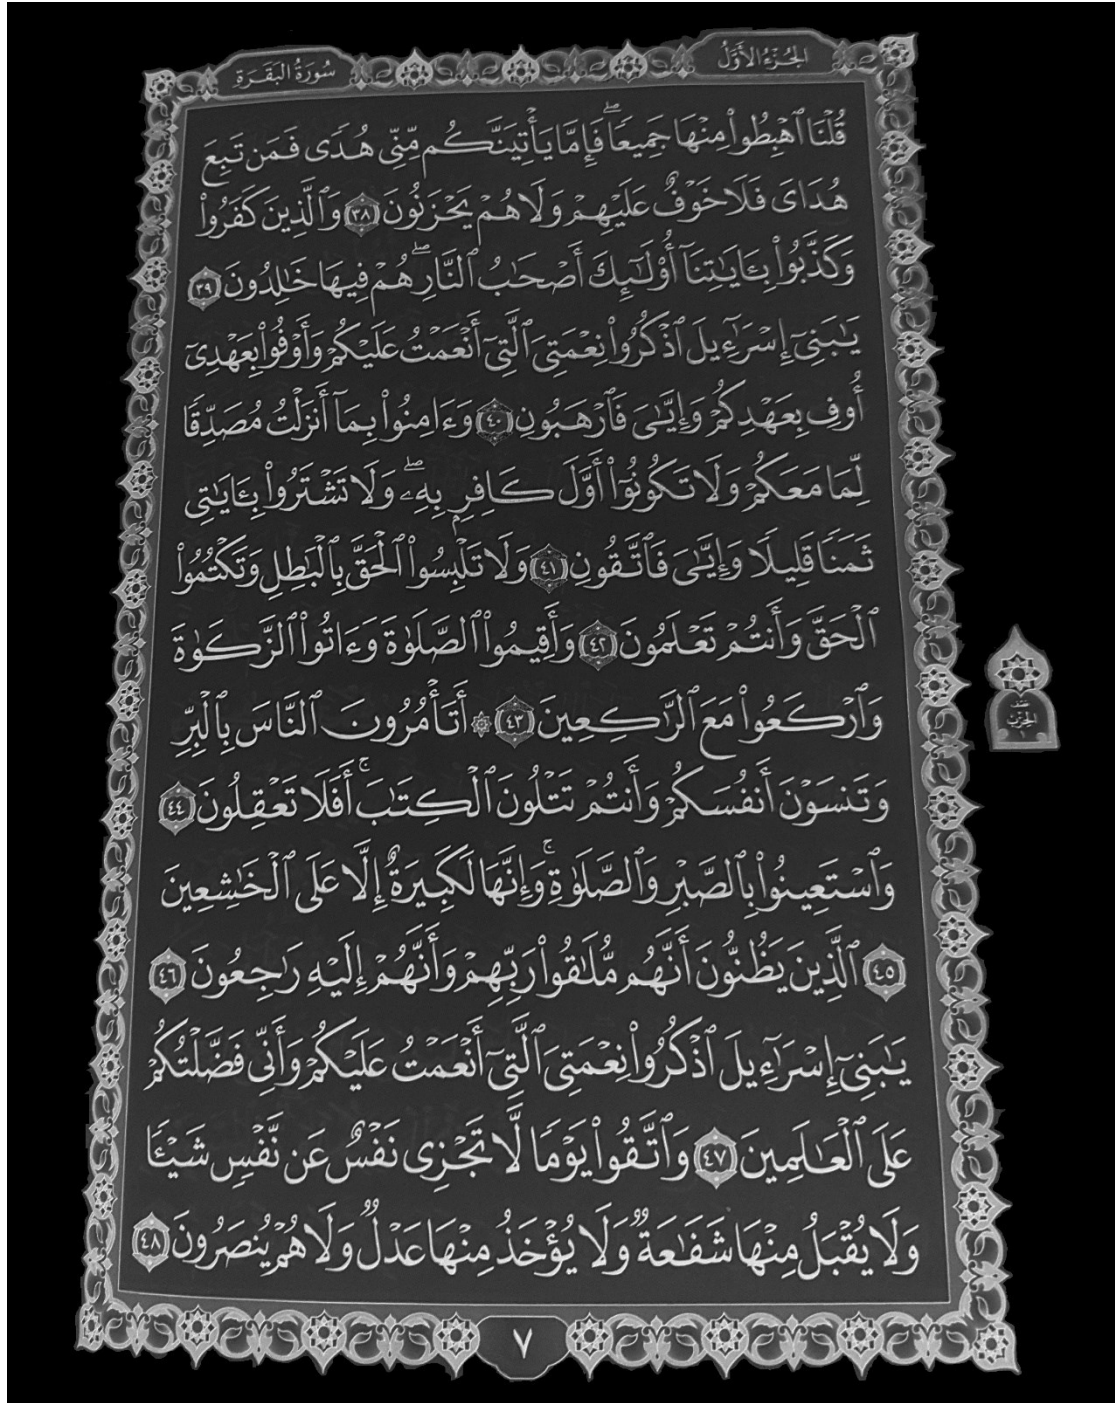 الجُزْءُ الأَوَّلُ
سُورَةُ البَقَرَةِ
قُلْنَا ٱهْبِطُوا۟ مِنْهَا جَمِيعًۭا ۖ فَإِمَّا يَأْتِيَنَّكُم مِّنِّى هُدًۭى فَمَن تَبِعَ
هُدَاىَ فَلَا خَوْفٌ عَلَيْهِمْ وَلَا هُمْ يَحْزَنُونَ ٣٨ وَٱلَّذِينَ كَفَرُوا۟
وَكَذَّبُوا۟ بِـَٔايَـٰتِنَآ أُو۟لَـٰٓئِكَ أَصْحَـٰبُ ٱلنَّارِ ۖ هُمْ فِيهَا خَـٰلِدُونَ ٣٩
يَـٰبَنِىٓ إِسْرَٰٓءِيلَ ٱذْكُرُوا۟ نِعْمَتِىَ ٱلَّتِىٓ أَنْعَمْتُ عَلَيْكُمْ وَأَوْفُوا۟ بِعَهْدِىٓ
أُوفِ بِعَهْدِكُمْ وَإِيَّـٰىَ فَٱرْهَبُونِ ٤٠ وَءَامِنُوا۟ بِمَآ أَنزَلْتُ مُصَدِّقًۭا
لِّمَا مَعَكُمْ وَلَا تَكُونُوٓا۟ أَوَّلَ كَافِرٍۭ بِهِۦ ۖ وَلَا تَشْتَرُوا۟ بِـَٔايَـٰتِى
ثَمَنًۭا قَلِيلًۭا وَإِيَّـٰىَ فَٱتَّقُونِ ٤١ وَلَا تَلْبِسُوا۟ ٱلْحَقَّ بِٱلْبَـٰطِلِ وَتَكْتُمُوا۟
ٱلْحَقَّ وَأَنتُمْ تَعْلَمُونَ ٤٢ وَأَقِيمُوا۟ ٱلصَّلَوٰةَ وَءَاتُوا۟ ٱلزَّكَوٰةَ
وَٱرْكَعُوا۟ مَعَ ٱلرَّٰكِعِينَ ٤٣ ۞ أَتَأْمُرُونَ ٱلنَّاسَ بِٱلْبِرِّ
وَتَنسَوْنَ أَنفُسَكُمْ وَأَنتُمْ تَتْلُونَ ٱلْكِتَـٰبَ ۚ أَفَلَا تَعْقِلُونَ ٤٤
وَٱسْتَعِينُوا۟ بِٱلصَّبْرِ وَٱلصَّلَوٰةِ ۚ وَإِنَّهَا لَكَبِيرَةٌ إِلَّا عَلَى ٱلْخَـٰشِعِينَ
٤٥ ٱلَّذِينَ يَظُنُّونَ أَنَّهُم مُّلَـٰقُوا۟ رَبِّهِمْ وَأَنَّهُمْ إِلَيْهِ رَٰجِعُونَ ٤٦
يَـٰبَنِىٓ إِسْرَٰٓءِيلَ ٱذْكُرُوا۟ نِعْمَتِىَ ٱلَّتِىٓ أَنْعَمْتُ عَلَيْكُمْ وَأَنِّى فَضَّلْتُكُمْ
عَلَى ٱلْعَـٰلَمِينَ ٤٧ وَٱتَّقُوا۟ يَوْمًۭا لَّا تَجْزِى نَفْسٌ عَن نَّفْسٍۢ شَيْـًۭٔا
وَلَا يُقْبَلُ مِنْهَا شَفَـٰعَةٌۭ وَلَا يُؤْخَذُ مِنْهَا عَدْلٌۭ وَلَا هُمْ يُنصَرُونَ ٤٨
٧
الحِزْبِ
١